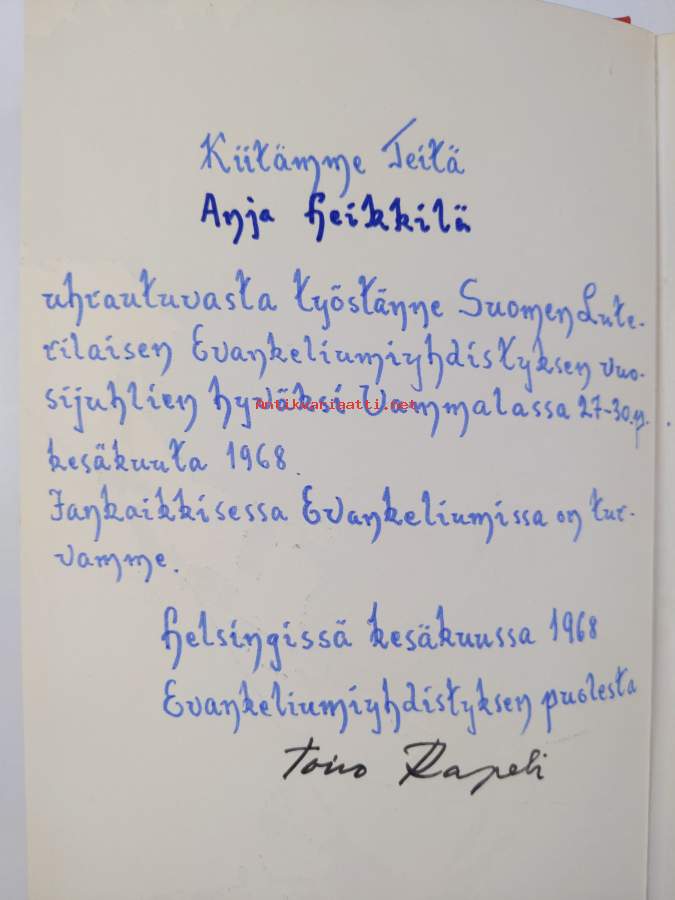 Kiitämme Teitä
Anja Heikkilä
uhrautuvasta työstänne Suomen Lute-
rilaisen Evankeliumiyhdistyksen vuo-
sijuhlien hyväksi Vammalassa 27-30.p.
Antikvariaatti.net
kesäkuuta 1968.
Iankaikkisessa Evankeliumissa on tur-
vamme.
Helsingissä kesäkuussa 1968
Evankeliumiyhdistyksen puolesta
Toivo Rapeli